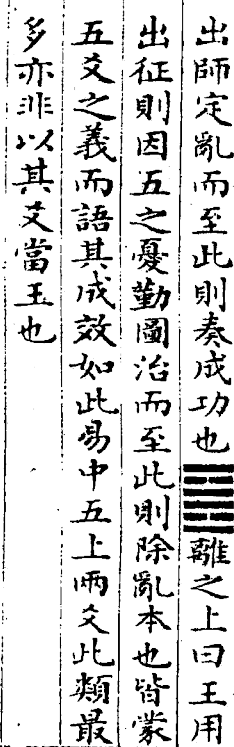 出師定亂而至此則奏成功也䷝離之上曰王用
出征則因五之憂勤圖治而至此則除亂本也皆蒙
五爻之義而語其成效如此易中五上兩爻此類最
多亦非以其爻當王也